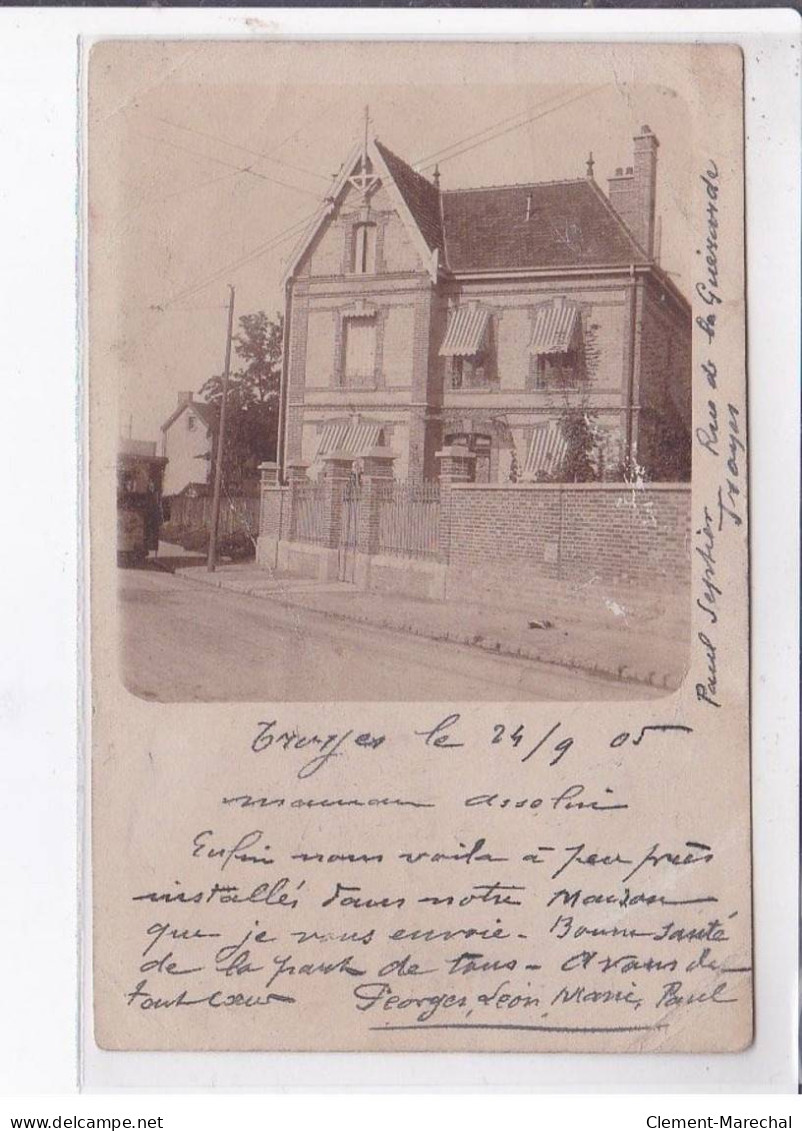 Troyes le 24/9 05
maman Asselin
Enfin nous voila à peu près
installés dans notre Maison
que je vous envoie - Bonne santé
de la part de tous - A vous de
tout cœur Georges, Léon, Marie, Paul
Paul Septier Rue de la Guerarde
Troyes
Clement-Marechal